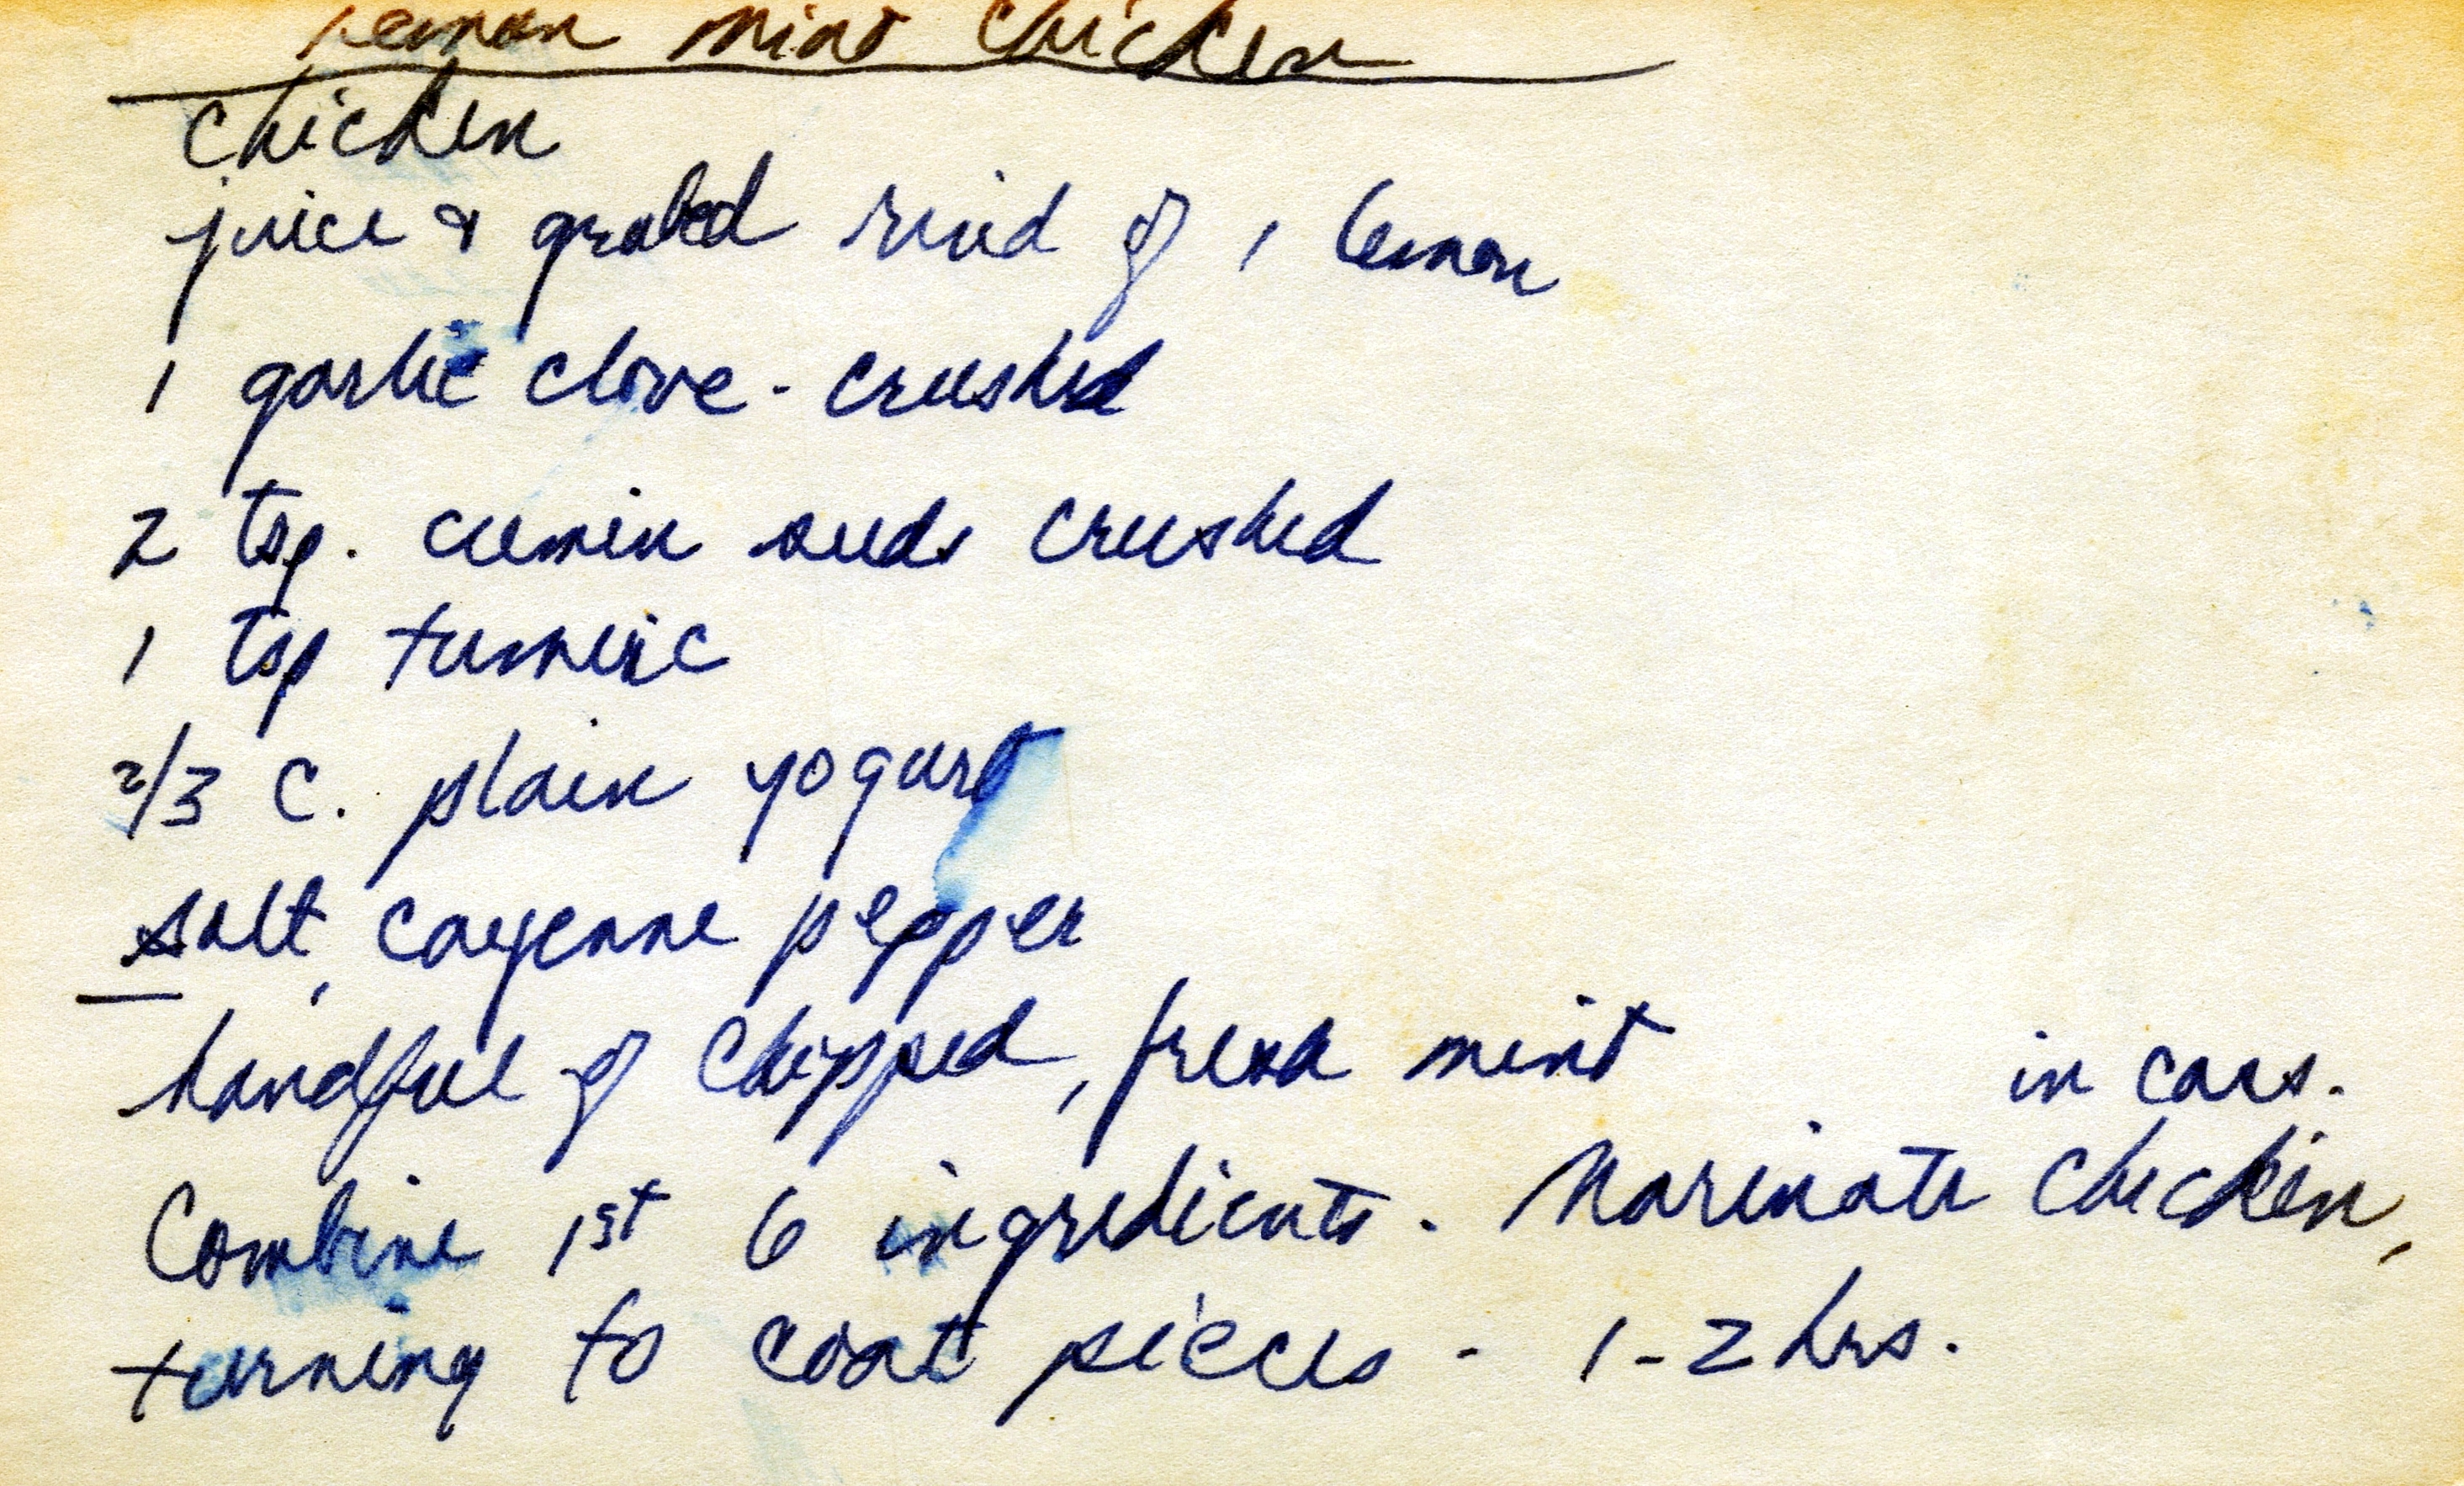 Lemon Mint Chicken
Chicken
juice & grated rind of 1 lemon
1 garlic clove - crushed
2 tsp. cumin seeds crushed
1 tsp tumeric
2/3 C. plain yogurt
salt, cayenne pepper
handful of chopped, fresh mint
in cass.
Combine 1st 6 ingredients. Marinate chicken,
turning to coat pieces - 1-2 hrs.